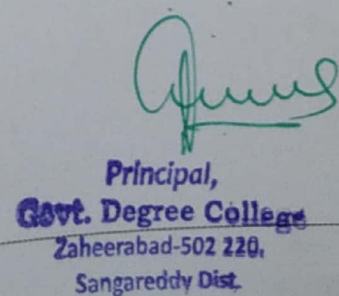 Principal,
Govt. Degree College
Zaheerabad-502 220.
Sangareddy Dist.